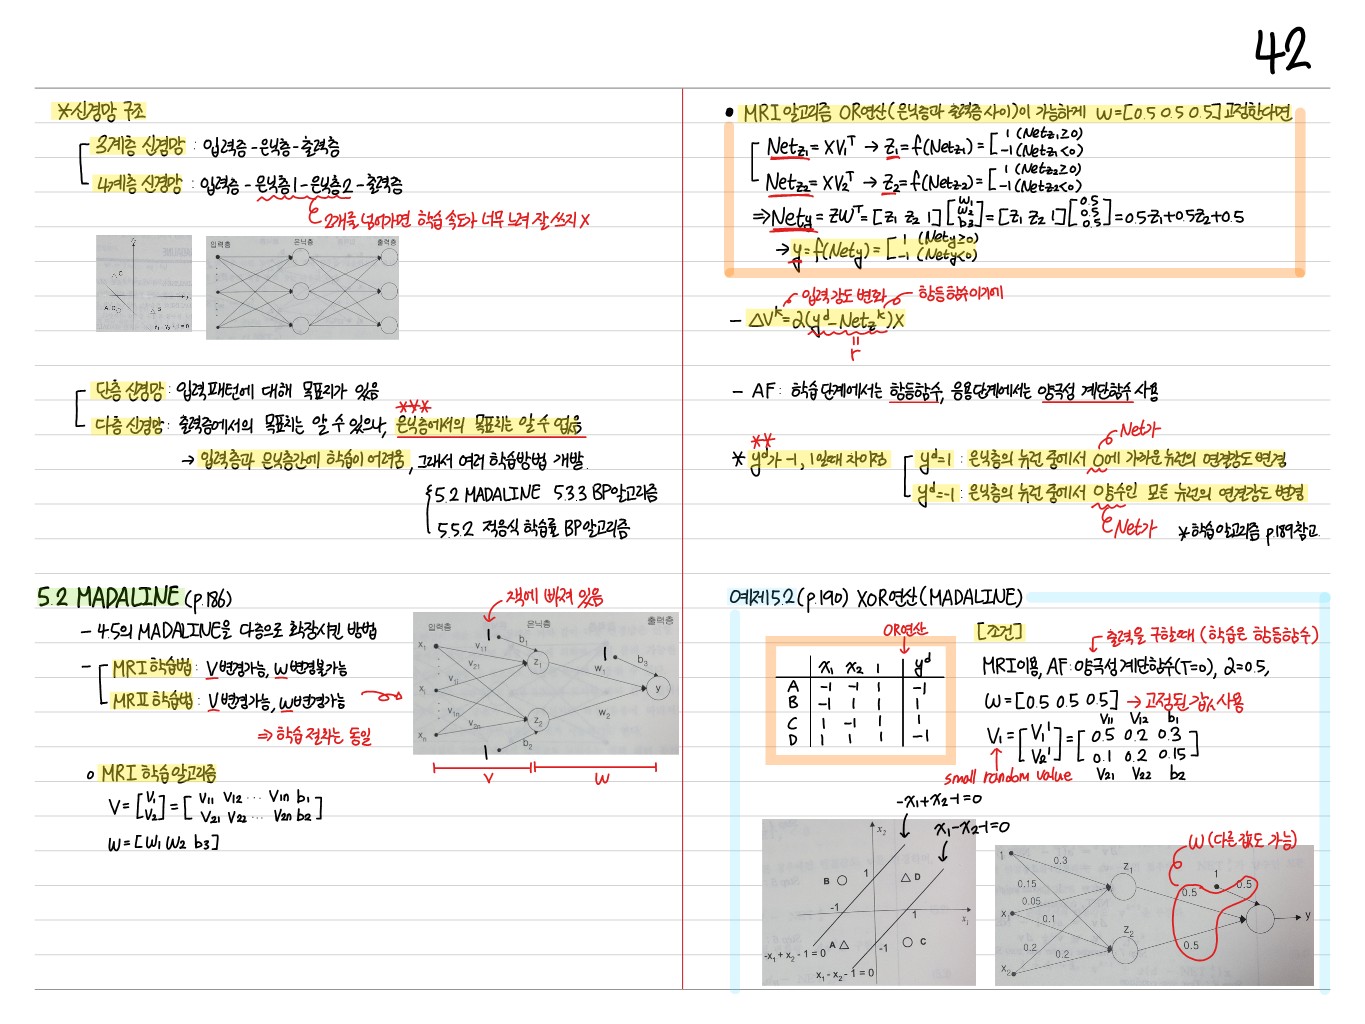 42
*신경망 구조
3계층 신경망 : 입력층 - 은닉층 - 출력층
4계층 신경망 : 입력층 - 은닉층1 - 은닉층2 - 출력층
2개를 넘어가면 학습 속도가 너무 느려 잘 쓰지 X
입력층 은닉층 출력층
단층 신경망 : 입력패턴에 대해 목표치가 있음
***
다층 신경망 : 출력층에서의 목표치는 알 수 있으나, 은닉층에서의 목표치는 알 수 없음
→ 입력층과 은닉층간에 학습이 어려움, 그래서 여러 학습방법 개발.
5.2 MADALINE 5.3.3 BP알고리즘
5.5.2 적응식 학습률 BP알고리즘
5.2 MADALINE (p.186)
- 4.5의 MADALINE을 다층으로 확장시킨 방법
- MRI 학습법 : V 변경가능, W 변경불가능
MRII 학습법 : V 변경가능, W 변경가능
⇒ 학습 절차는 동일
2책에 빠져 있음
입력층 은닉층 출력층
x₁ v₁₁ v₂₁ 1 b₁ z₁ 1 b₃
xᵢ v₁ᵢ w₁ y
v₁ₙ v₂ₙ z₂ w₂
xₙ 1 b₂
V W
o MRI 학습알고리즘
V = [V₁ V₂] = [V₁₁ V₁₂ ⋯ V₁ₙ b₁
V₂₁ V₂₂ ⋯ V₂ₙ b₂]
W = [W₁ W₂ b₃]
• MRI 알고리즘 OR연산(은닉층과 출력층 사이)이 가능하게 W=[0.5 0.5 0.5]고정한다면
Net_z₁ = XV₁ᵀ → z₁ = f(Net_z₁) = [1 (Net_z₁≥0)
-1 (Net_z₁<0)
Net_z₂ = XV₂ᵀ → z₂ = f(Net_z₂) = [1 (Net_z₂≥0)
-1 (Net_z₂<0)
⇒ Net_y = ZWᵀ = [z₁ z₂ 1][W₁ W₂ b₃] = [z₁ z₂ 1][0.5 0.5 0.5] = 0.5z₁+0.5z₂+0.5
→ y = f(Net_y) = [1 (Net_y≥0)
-1 (Net_y<0)
입력 강도 변화 항등함수이기에
- ΔVᵏ = α(yᵈ - Net_zᵏ)X
= r
- AF : 학습 단계에서는 항등함수, 응용단계에서는 양극성 계단함수 사용
** Net가
* yᵈ가 -1, 1일때 차이점
yᵈ=1 : 은닉층의 뉴런 중에서 0에 가까운 뉴런의 연결강도 변경
yᵈ=-1 : 은닉층의 뉴런 중에서 양수인 모든 뉴런의 연결강도 변경
Net가 *학습 알고리즘 p.189참고.
예제5.2 (p.190) XOR연산(MADALINE)
OR연산
x₁ x₂ 1 yᵈ
A -1 -1 1 -1
B -1 1 1 1
C 1 -1 1 1
D 1 1 1 -1
[조건]
출력을 구할때 (학습은 항등함수)
MRI이용, AF:양극성계단함수(T=0), α=0.5,
W = [0.5 0.5 0.5] → 고정된 값 사용
V₁₁ V₁₂ b₁
V₁ = [V₁¹ V₂¹] = [0.5 0.2 0.3
0.1 0.2 0.15]
small random value V₂₁ V₂₂ b₂
-x₁+x₂-1=0
x₁-x₂-1=0
x₂
1
B D
-1 1 x₁
A -1 C
-x₁ + x₂ - 1 = 0
x₁ - x₂ - 1 = 0
W (다른 값도 가능)
1 0.3 z₁ 1
0.15 0.5 0.5
0.05
x₁ 0.1 y
z₂
0.2 0.2 0.5
x₂